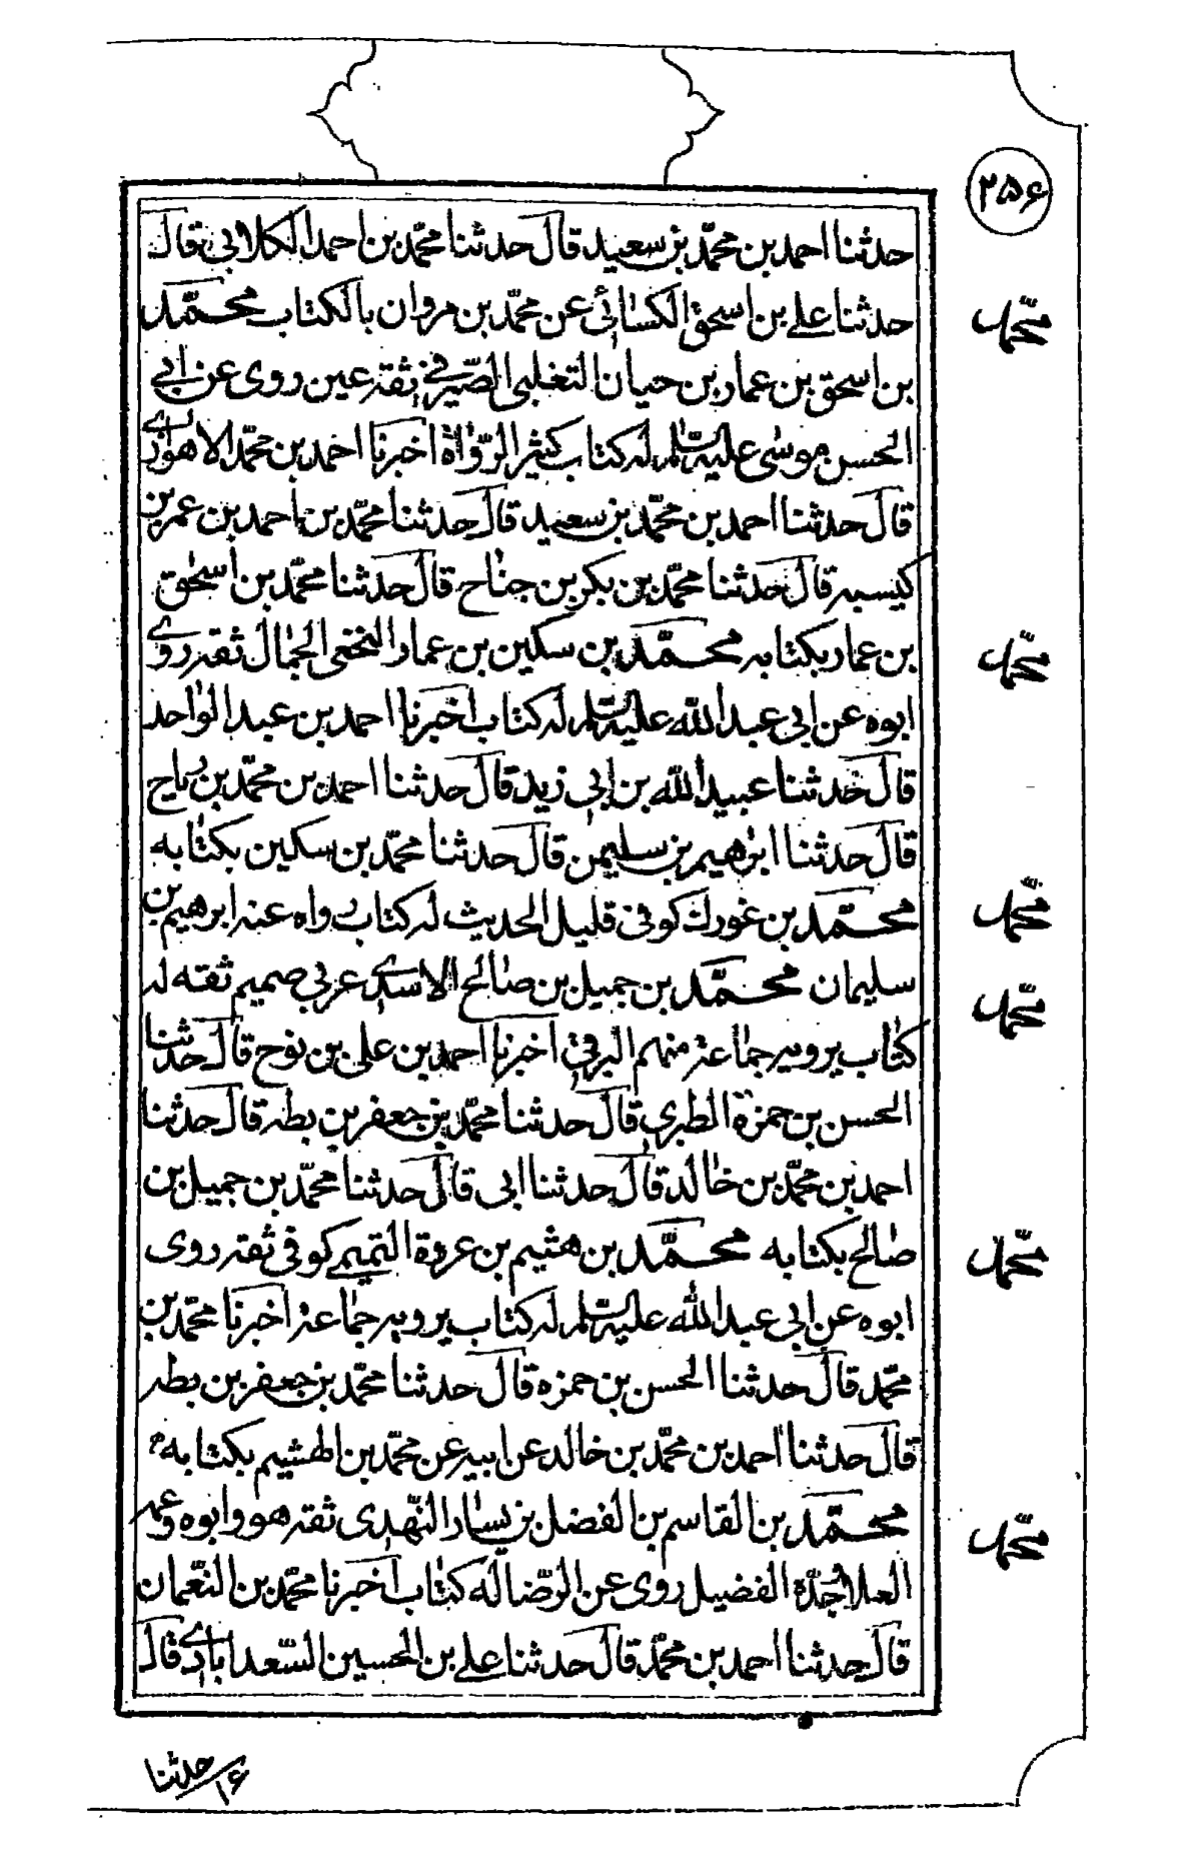 ۲۵۶
حدثنا احمد بن محمّد بن سعيد قال حدثنا محمّد بن احمد الكلابي قال
حدثنا علي بن اسحق الكسائي عن محمّد بن مروان بالكتاب محمّد
محمّد
بن اسحق بن عمار بن حيان التغلبي الصّيرفي ثقة عين روى عن ابي
الحسن موسى عليه السلم له كتاب كثير الرّواة اخبرنا احمد بن محمّد الاهوازي
قال حدثنا احمد بن محمّد بن سعيد قال حدثنا محمّد بن احمد بن عمر بن
كيسبه قال حدثنا محمّد بن بكر بن جناح قال حدثنا محمّد بن اسحاق
بن عمار بكتابه محمّد بن سكين بن عمار النخعي الجمال ثقة روى
محمّد
ابوه عن ابي عبد الله عليه السلم له كتاب اخبرنا احمد بن عبد الواحد
قال حدثنا عبيد الله بن ابي زيد قال حدثنا احمد بن محمّد بن رباح
قال حدثنا ابرهيم بن سليمن قال حدثنا محمّد بن سكين بكتابه
محمّد بن غورك كوفي قليل الحديث له كتاب رواه عنه ابرهيم بن
محمّد
سليمان محمّد بن جميل بن صالح الاسدي عربي صميم ثقه له
محمّد
كتاب يرويه جماعة منهم البرقي اخبرنا احمد بن علي بن نوح قال حدثنا
الحسن بن حمزة الطبري قال حدثنا محمّد بن جعفر بن بطه قال حدثنا
احمد بن محمّد بن خالد قال حدثنا ابي قال حدثنا محمّد بن جميل بن
صالح بكتابه محمّد بن هثيم بن عروة التميمي كوفي ثقة روى
محمّد
ابوه عن ابي عبد الله عليه السلم له كتاب يرويه جماعة اخبرنا محمّد بن
محمّد قال حدثنا الحسن بن حمزه قال حدثنا محمّد بن جعفر بن بطه
قال حدثنا احمد بن محمّد بن خالد عن ابيه عن محمّد بن الهثيم بكتابه
محمّد بن القاسم بن الفضيل بن يسار النّهدي ثقة هو وابوه وعمه
محمّد
العلا وجدّه الفضيل روى عن الرّضا له كتاب اخبرنا محمّد بن النّعمان
قال حدثنا احمد بن محمّد قال حدثنا علي بن الحسين السّعدابادي قال
حدثنا